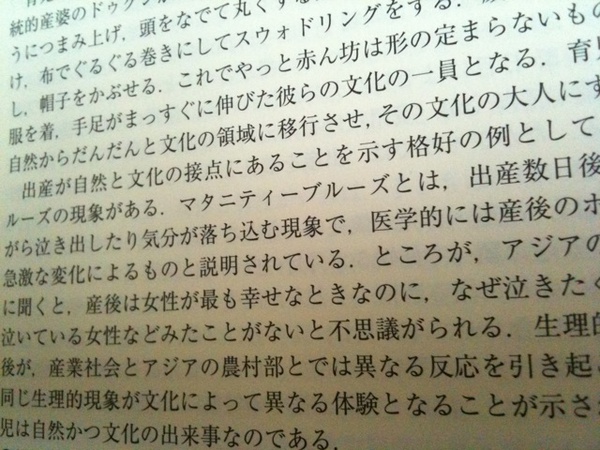 統的産婆のドゥクン
うにつまみ上げ，頭をなでて丸くする
け，布でぐるぐる巻きにしてスウォドリングをする．
し，帽子をかぶせる．これでやっと赤ん坊は形の定まらないもの
服を着，手足がまっすぐに伸びた彼らの文化の一員となる．育児
自然からだんだんと文化の領域に移行させ，その文化の大人にす
出産が自然と文化の接点にあることを示す格好の例として
ルーズの現象がある．マタニティーブルーズとは，出産数日後
がら泣き出したり気分が落ち込む現象で，医学的には産後のホ
急激な変化によるものと説明されている．ところが，アジアの
に聞くと，産後は女性が最も幸せなときなのに，なぜ泣きたく
泣いている女性などみたことがないと不思議がられる．生理的
後が，産業社会とアジアの農村部とでは異なる反応を引き起こ
同じ生理的現象が文化によって異なる体験となることが示さ
児は自然かつ文化の出来事なのである．